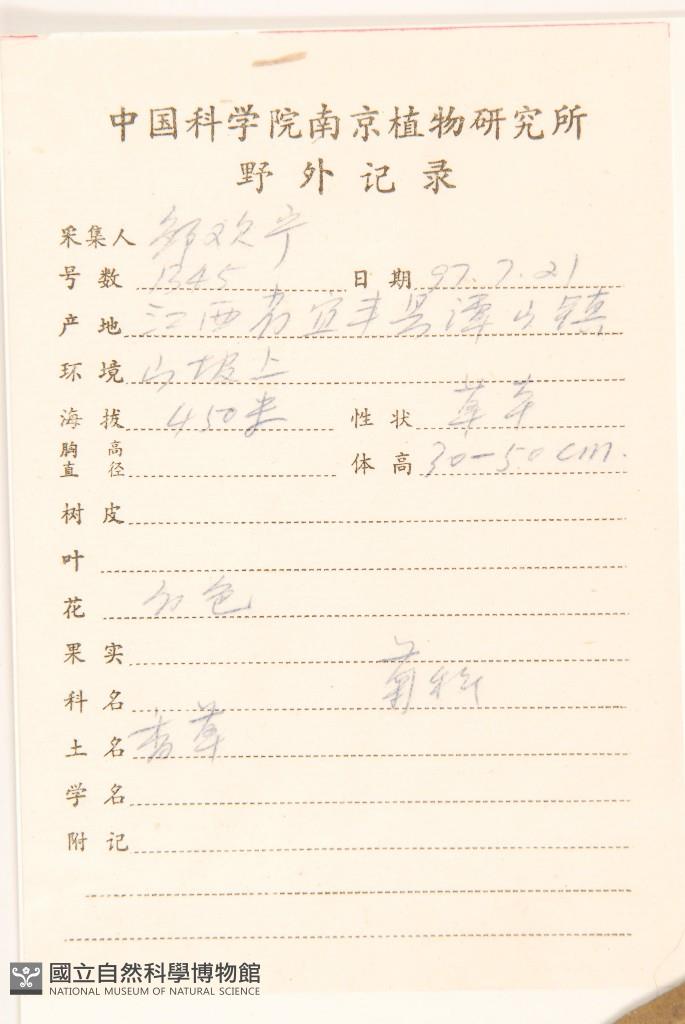 中国科学院南京植物研究所
野外记录
采集人 邹欢宁
号数 1345 日期 97.7.21
产地 江西省宜丰县潭山镇
环境 山坡上
海拔 450米 性状 草本
胸高直径 体高 30-50cm.
树皮
叶
花 红色
果实
科名 菊科
土名 香草
学名
附记
國立自然科學博物館
NATIONAL MUSEUM OF NATURAL SCIENCE